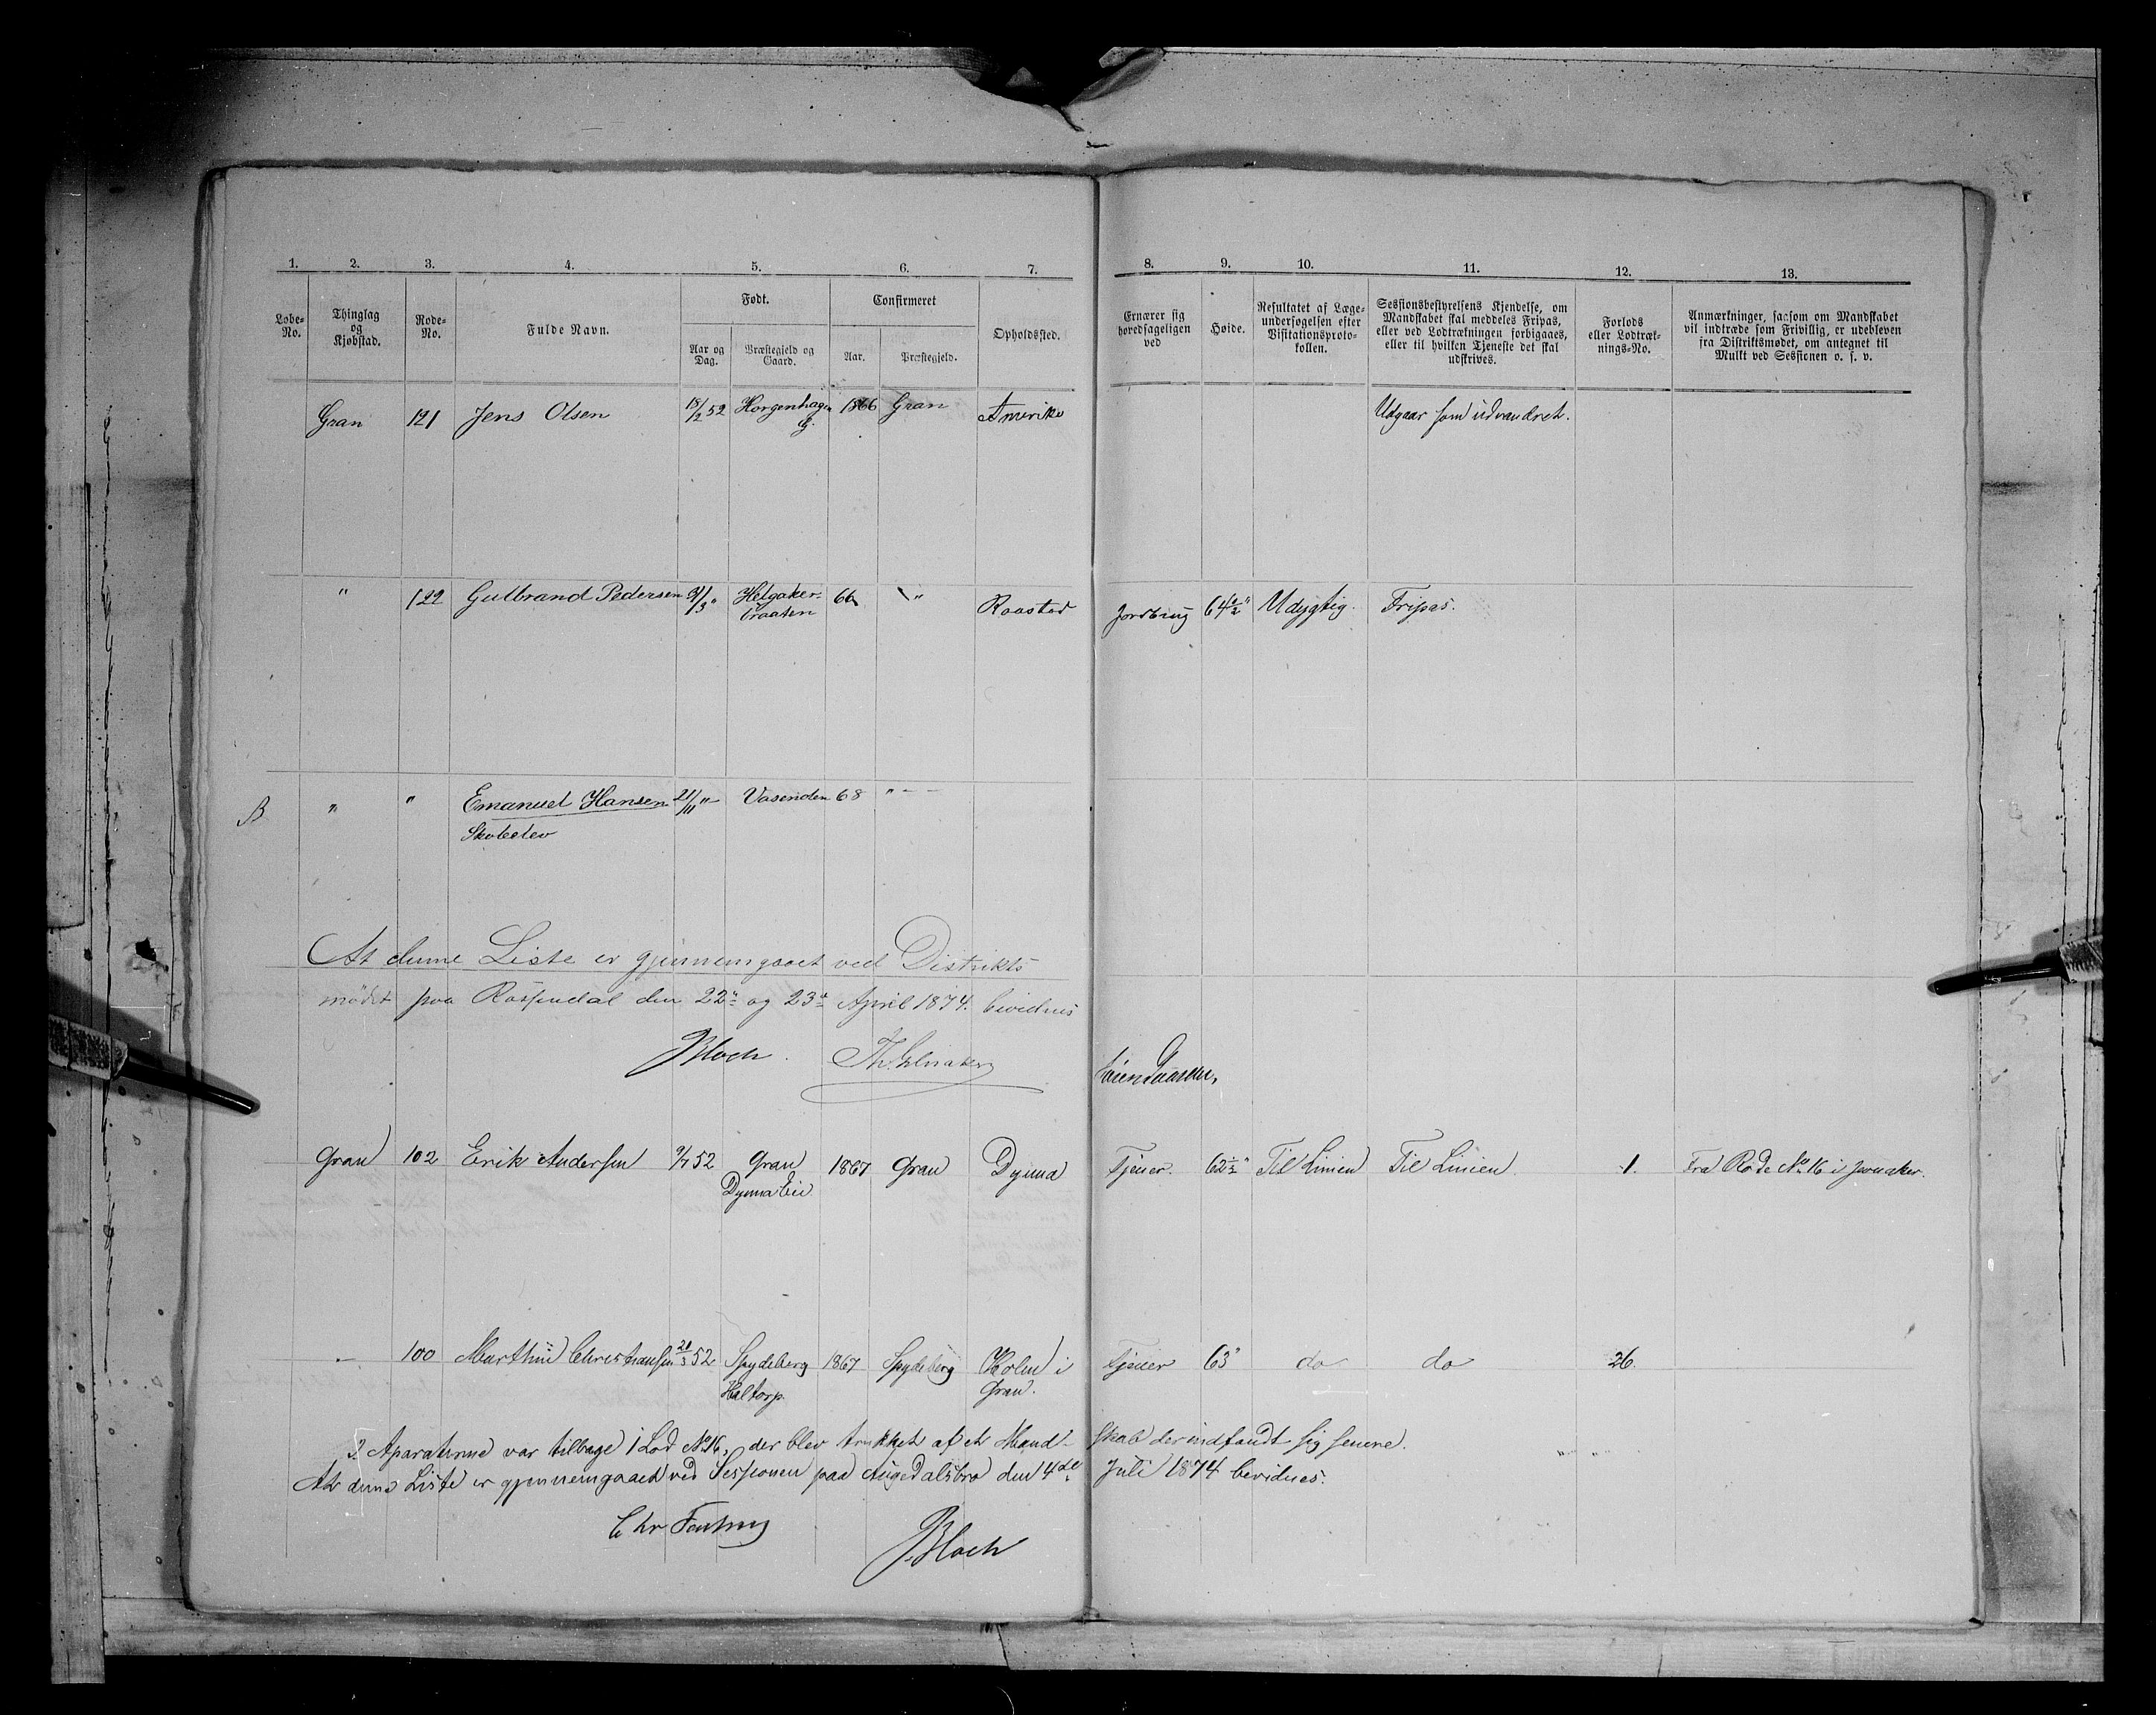 1. 2. 3. 4. 5. 6. 7. 8. 9. 10. 11. 12. 13.
Løbe-No. Thinglag og Kjøbstad. Rode-No. Fulde Navn. Født. Confirmeret Opholdssted. Ernærer sig hovedsageligen ved Høide. Resultatet af Lægeundersøgelsen efter Visitationsprotokollen. Sessionsbestyrelsens Kjendelse, om Mandskabet skal meddeles Fripas, eller ved Lodtrækningen forbigaaes, eller til hvilken Tjeneste det skal udskrives. Forlods eller Lodtræknings-No. Anmærkninger, saasom om Mandskabet vil indtræde som Frivillig, er udebleven fra Distriktsmødet, om antegnet til Mulkt ved Sessionen o. s. v.
Aar og Dag. Præstegjeld og Gaard. Aar. Præstegjeld.
Gran 121 Jens Olsen 18/2 52 Horgenhagen 1866 Gran Amerika Udgaar som udvandret.
G.
" 122 Gulbrand Pedersen 31/3 " Helgaker- 66 " Raastad Jordbrug 64½" Udygtig. Fripas.
braaten
B " " Emanuel Hansen 21/11 " Vasenden 68 " - -
Skobelev
At denne Liste er gjennemgaaet ved Distrikts
mødet paa den 22de og 23de April 1874. bevidnes
JBloch.
Lensmand.
Gran 102 Erik Andersen 9/7 52 Gran 1867 Gran Dynna Tjener. 62½" Til Linien Til Linien 1. Fra Rode No 16 i Jevnaker.
Dynna Eie
- 100 Marthin Christiansen 52 Spydeberg 1867 Spydeberg Holen i Tjener 63" do do 26.
Haltorp. Gran.
I Aparaterne var tilbage 1 Lod No 16, der blev trukket af et Mand- skab der indfandt sig senere.
At denne Liste er gjennemgaaet ved Sessionen paa Augedalsbro den 4de Juli 1874 bevidnes.
Chr
JBloch